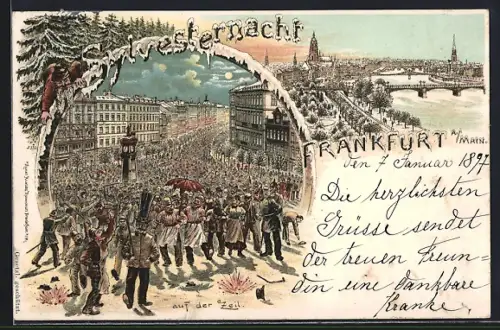 Sylvesternacht
FRANKFURT a/MAIN.
den 7 Januar 1897
Die herzlichsten
Grüsse sendet
der treuen Freun-
din eine dankbare
Kranke.
auf der Zeil.